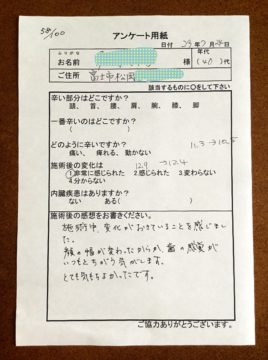 58/100
アンケート用紙
日付 29年7月24日
ふりがな
お名前 様
年代
(40)代
ご住所 富士市松岡
該当するものに○をして下さい
辛い部分はどこですか?
頭、首、腰、肩、腕、膝、脚
一番辛いのはどこですか?
どのように辛いですか?
痛い、痺れる、動かない
施術後の変化は 12.9→12.4
①非常に感じられた 2.感じられた 3.変わらない
4.分からない
内臓疾患はありますか?
ない ある( )
施術後の感想をお書きください。
施術中、変化がおきていることを感じまし
た。
顔の幅が変わったからか、歯の感覚が
いつもとちがう気がします。
とても気持ちよかったです。
ご協力ありがとうございます。